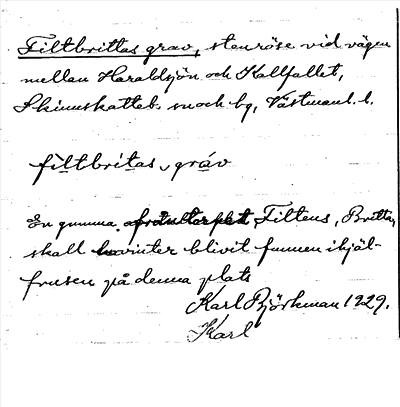 Filtbrittas grav, stenröse vid vägen
mellan Haraldsjön och Kallfallet,
Skinnskatteb. sn och bg, Västmanl. l.
filtbritas, grav
En gumma, Filtens, Britta,
skall vinter blivit funnen ihjäl-
frusen på denna plats
Karl Björkman 1929.
Karl